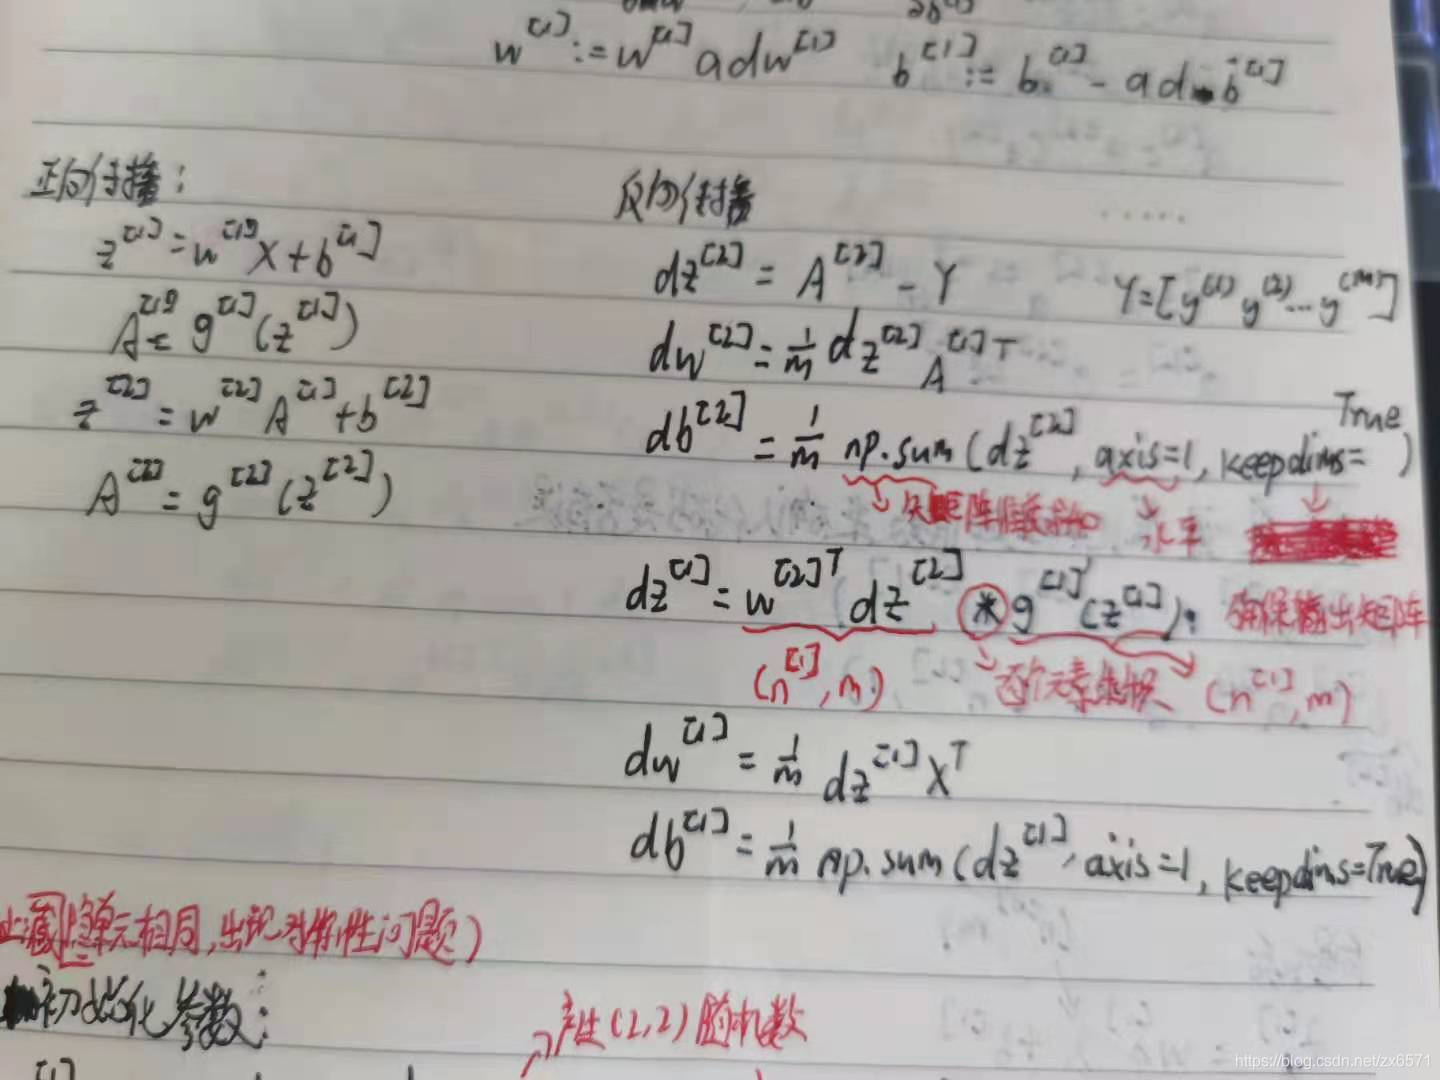 w^[1] := w^[1] a dw^[1]  b^[1] := b^[1] - a d b^[1]
正向传播：
z^[1] = w^[1] X + b^[1]
A^[1] = g^[1](z^[1])
z^[2] = w^[2] A^[1] + b^[2]
A^[2] = g^[2](z^[2])
反向传播
......
dz^[2] = A^[2] - Y  Y = [y^(1) y^(2) ... y^(m)]
dw^[2] = 1/m dz^[2] A^[1]T
db^[2] = 1/m np.sum(dz^[2], axis=1, keepdims=True)
矩阵 求和 水平
dz^[1] = w^[2]T dz^[2] * g^[1]'(z^[1]); 确保输出矩阵
(n^[1], m) 逐个元素乘积 (n^[1], m)
dw^[1] = 1/m dz^[1] X^T
db^[1] = 1/m np.sum(dz^[1], axis=1, keepdims=True)
止藏隐单元相同，出现对称性问题）
初始化参数：
产生(2,2)随机数
https://blog.csdn.net/zx6571